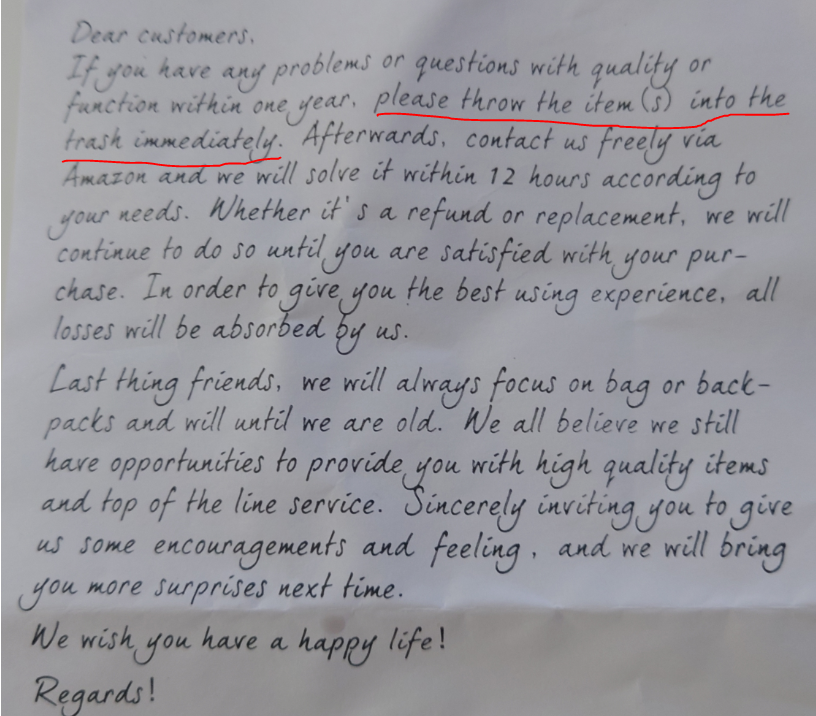 Dear customers.
If you have any problems or questions with quality or
function within one year, please throw the item(s) into the
trash immediately. Afterwards, contact us freely via
Amazon and we will solve it within 12 hours according to
your needs. Whether it's a refund or replacement, we will
continue to do so until you are satisfied with your pur-
chase. In order to give you the best using experience, all
losses will be absorbed by us.
Last thing friends, we will always focus on bag or back-
packs and will until we are old. We all believe we still
have opportunities to provide you with high quality items
and top of the line service. Sincerely inviting you to give
us some encouragements and feeling, and we will bring
you more surprises next time.
We wish you have a happy life!
Regards!